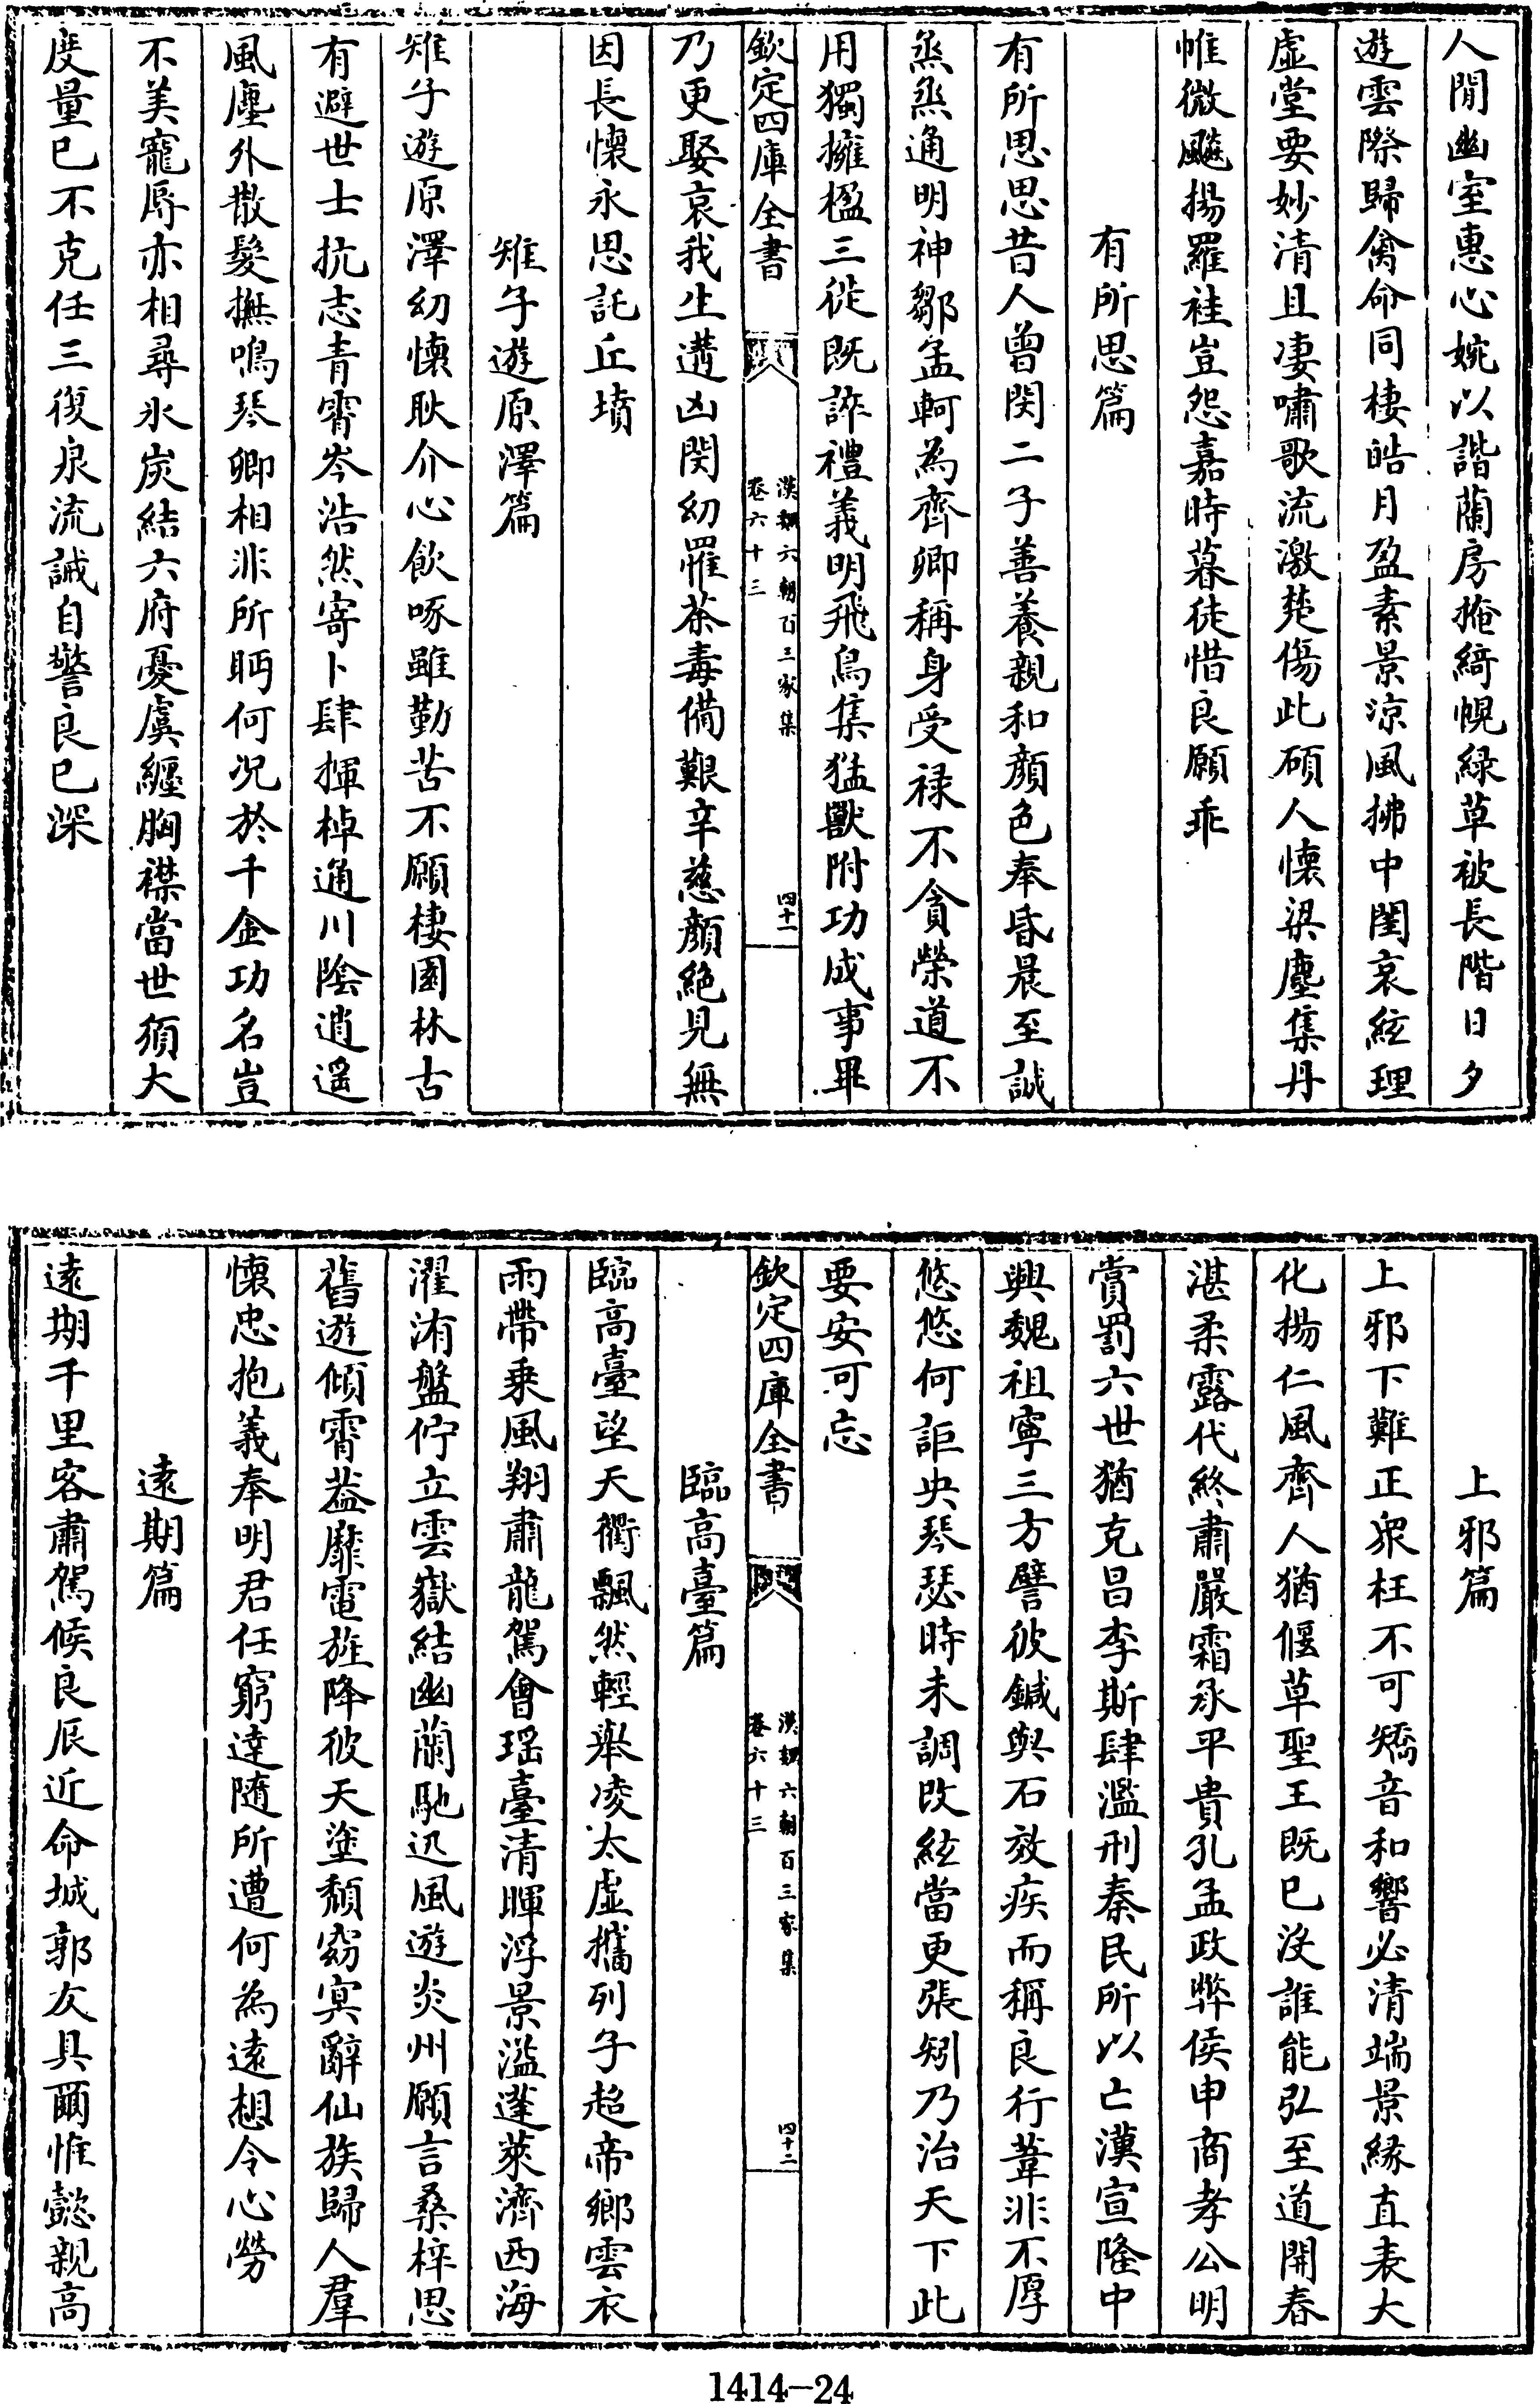 人閒幽室惠心婉以諧蘭房掩綺幌緑草被長階日夕
遊雲際歸禽命同棲皓月盈素景涼風拂中閨哀絃理
虛堂要妙清且淒嘯歌流激楚傷此碩人懷梁塵集丹
帷微飈揚羅袿豈怨嘉時暮徒惜良願乖
有所思篇
有所思思昔人曾閔二子善養親和顔色奉昏晨至誠
烝烝通明神鄒孟軻為齊卿稱身受禄不貪榮道不
用獨擁楹三徙既誶禮義明飛鳥集猛獸附功成事畢
欽定四庫全書
漢魏六朝百三家集
卷六十三
四十一
乃更娶哀我生遘凶閔幼罹荼毒備艱辛慈顔絶見無
因長懷永思託丘墳
雉子遊原澤篇
雉子遊原澤幼懷耿介心飲啄雖勤苦不願棲園林古
有避世士抗志青霄岑浩然寄卜肆揮棹通川陰逍遥
風塵外散髮撫鳴琴卿相非所眄何况於千金功名豈
不美寵辱亦相尋氷炭結六府憂虞纏胸襟當世須大
度量已不克任三復泉流誡自警良已深
上邪篇
上邪下難正衆枉不可矯音和響必清端景緣直表大
化揚仁風齊人猶偃草聖王既已没誰能弘至道開春
湛柔露代終肅嚴霜承平貴孔孟政弊侯申商孝公明
賞罰六世猶克昌李斯肆濫刑秦民所以亡漢宣隆中
興魏祖寧三方譬彼鍼與石效疾而稱良行葦非不厚
悠悠何詎央琴瑟時未調改絃當更張矧乃治天下此
要安可忘
欽定四庫全書
漢魏六朝百三家集
卷六十三
四十二
臨高臺篇
臨高臺望天衢飄然輕舉凌太虛攜列子超帝鄉雲衣
雨帶乗風翔肅龍駕會瑶臺清暉浮景溢蓬萊濟西海
濯洧盤佇立雲嶽結幽蘭馳迅風遊炎州願言桑梓思
舊遊傾霄葢靡電旌降彼天塗頹窈冥辭仙族歸人羣
懷忠抱義奉明君任窮達随所遭何為遠想令心勞
遠期篇
遠期千里客肅駕候良辰近命城郭友具爾惟懿親高
1414-24